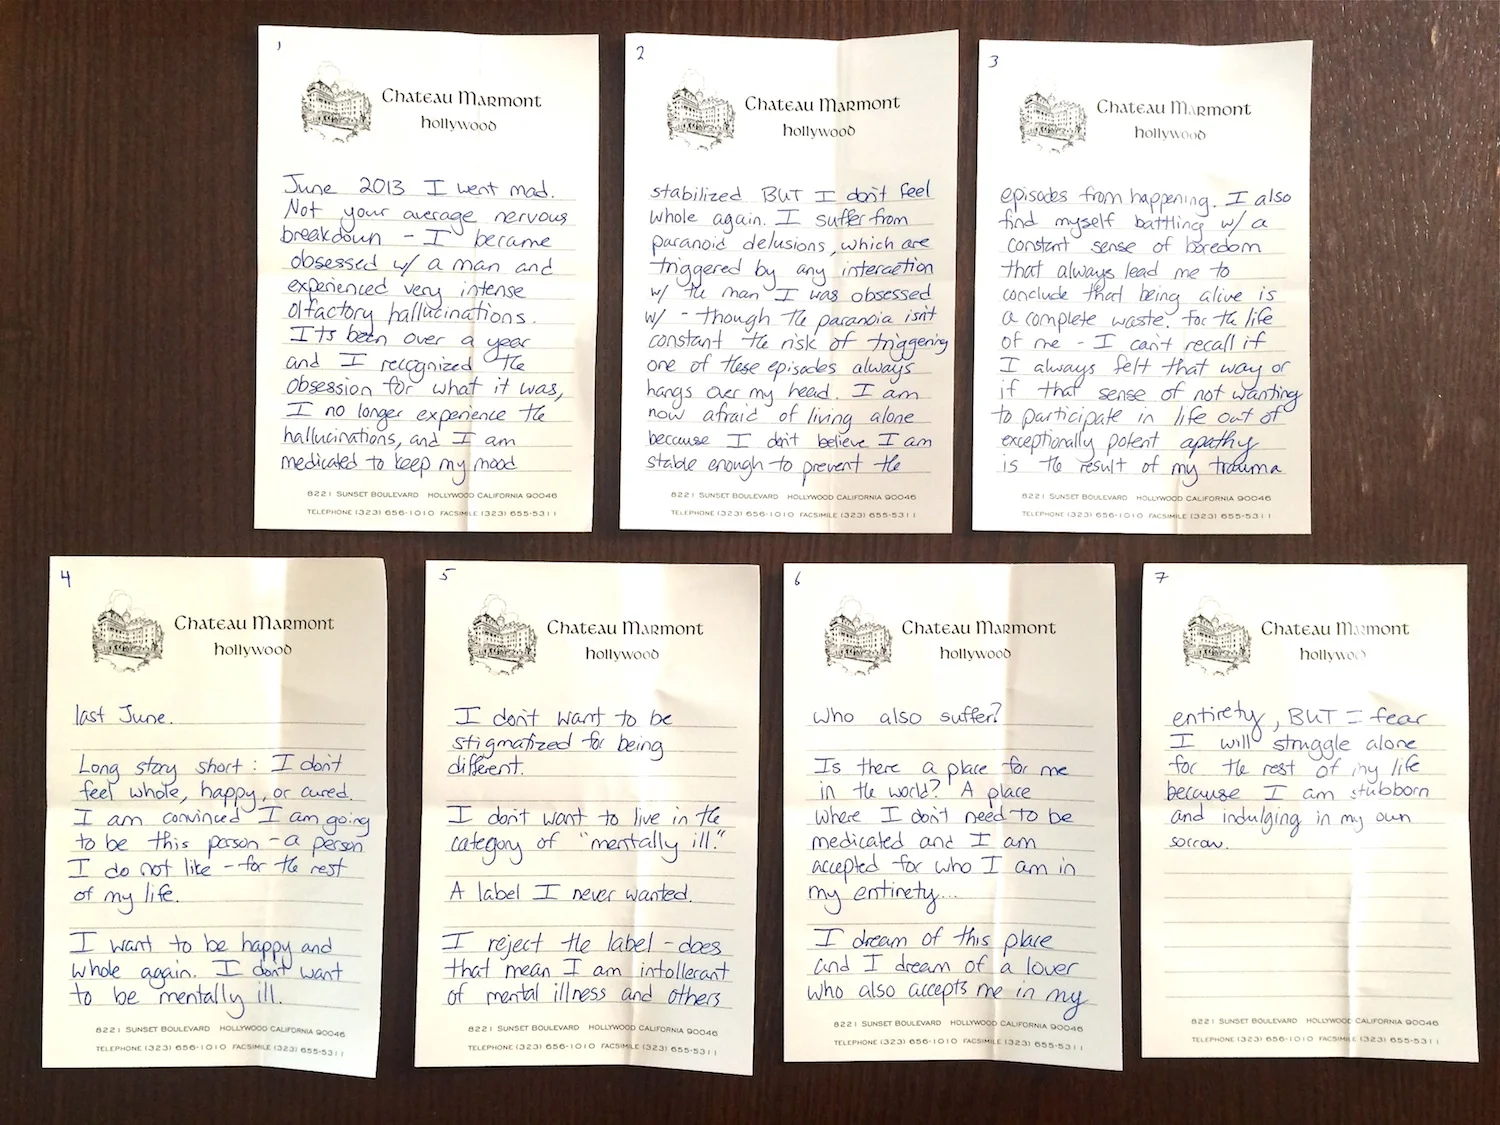 1
Chateau Marmont
hollywood
June 2013 I went mad.
Not your average nervous
breakdown - I became
obsessed w/ a man and
experienced very intense
olfactory hallucinations.
Its been over a year
and I recognized the
obsession for what it was,
I no longer experience the
hallucinations, and I am
medicated to keep my mood
8221 SUNSET BOULEVARD HOLLYWOOD CALIFORNIA 90046
TELEPHONE (323) 656-1010 FACSIMILE (323) 655-5311
2
Chateau Marmont
hollywood
stabilized BUT I don't feel
whole again. I suffer from
paranoid delusions, which are
triggered by any interaction
w/ the man I was obsessed
w/ - though the paranoia isn't
constant the risk of triggering
one of these episodes always
hangs over my head. I am
now afraid of living alone
because I don't believe I am
stable enough to prevent the
8221 SUNSET BOULEVARD HOLLYWOOD CALIFORNIA 90046
TELEPHONE (323) 656-1010 FACSIMILE (323) 655-5311
3
Chateau Marmont
hollywood
episodes from happening. I also
find myself battling w/ a
constant sense of boredom
that always lead me to
conclude that being alive is
a complete waste. For the life
of me - I can't recall if
I always felt that way or
if that sense of not wanting
to participate in life out of
exceptionally potent apathy
is the result of my trauma
8221 SUNSET BOULEVARD HOLLYWOOD CALIFORNIA 90046
TELEPHONE (323) 656-1010 FACSIMILE (323) 655-5311
4
Chateau Marmont
hollywood
last June.
Long story short: I don't
feel whole, happy, or cured.
I am convinced I am going
to be this person - a person
I do not like - for the rest
of my life.
I want to be happy and
whole again. I don't want
to be mentally ill.
8221 SUNSET BOULEVARD HOLLYWOOD CALIFORNIA 90046
TELEPHONE (323) 656-1010 FACSIMILE (323) 655-5311
5
Chateau Marmont
hollywood
I don't want to be
stigmatized for being
different.
I don't want to live in the
category of "mentally ill."
A label I never wanted.
I reject the label - does
that mean I am intollerant
of mental illness and others
8221 SUNSET BOULEVARD HOLLYWOOD CALIFORNIA 90046
TELEPHONE (323) 656-1010 FACSIMILE (323) 655-5311
6
Chateau Marmont
hollywood
who also suffer?
Is there a place for me
in the world? A place
where I don't need to be
medicated and I am
accepted for who I am in
my entirety...
I dream of this place
and I dream of a lover
who also accepts me in my
8221 SUNSET BOULEVARD HOLLYWOOD CALIFORNIA 90046
TELEPHONE (323) 656-1010 FACSIMILE (323) 655-5311
7
Chateau Marmont
hollywood
entirety, BUT I fear
I will struggle alone
for the rest of my life
because I am stubborn
and indulging in my own
sorrow.
8221 SUNSET BOULEVARD HOLLYWOOD CALIFORNIA 90046
TELEPHONE (323) 656-1010 FACSIMILE (323) 655-5311